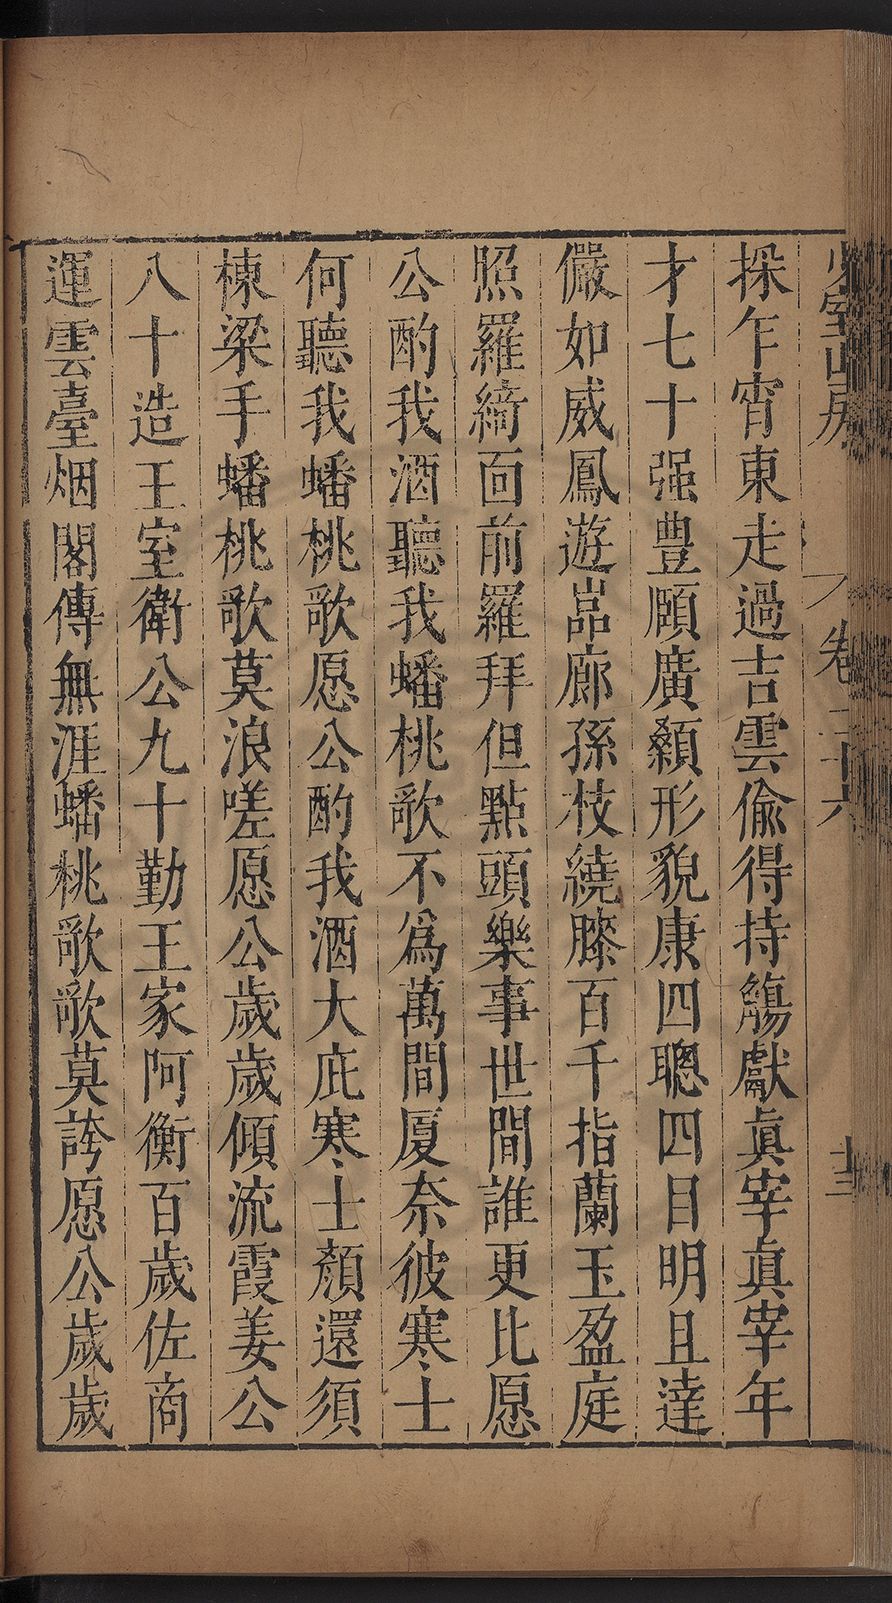 少室山房 卷二十六 十三
採乍宵東走過吉雲偷得持觴獻眞宰眞宰年
才七十强豊頤廣顙形貌康四聰四目明且達
儼如威鳳遊嵓廊孫枝繞膝百千指蘭玉盈庭
照羅綺面前羅拜但點頭樂事世間誰更比愿
公酌我酒聽我蟠桃歌不爲萬間厦奈彼寒士
何聽我蟠桃歌愿公酌我酒大庇寒士顏還須
棟梁手蟠桃歌莫浪嗟愿公歲歲傾流霞姜公
八十造王室衛公九十勤王家阿衡百歲佐商
運雲臺烟閣傳無涯蟠桃歌歌莫誇愿公歲歲